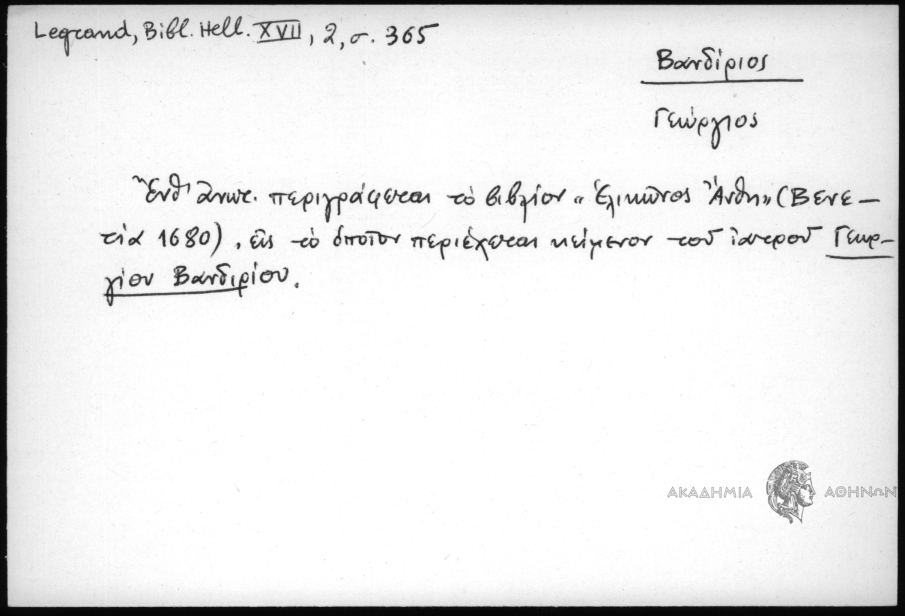 Legrand, Bibl. Hell. XVII, 2, σ. 365
Βανδίριος
Γεώργιος
Ἔνθ' ἀνωτ. περιγράφεται τὸ βιβλίον «Ἑλικῶνος Ἄνθη» (Βενε-
τία 1680), εἰς τὸ ὁποῖον περιέχεται κείμενον τοῦ ἰατροῦ Γεωρ-
γίου Βανδιρίου.
ΑΚΑΔΗΜΙΑ ΑΘΗΝΩΝ